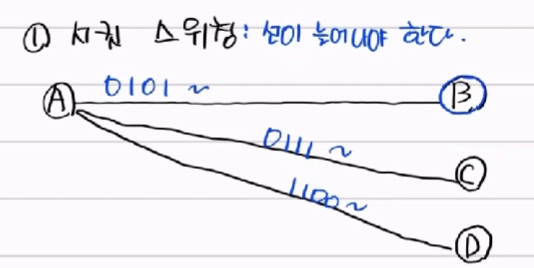 ① 서킷 스위칭: 선이 늘어나야 한다.
A 0101 ~ B
0111 ~ C
1100 ~ D